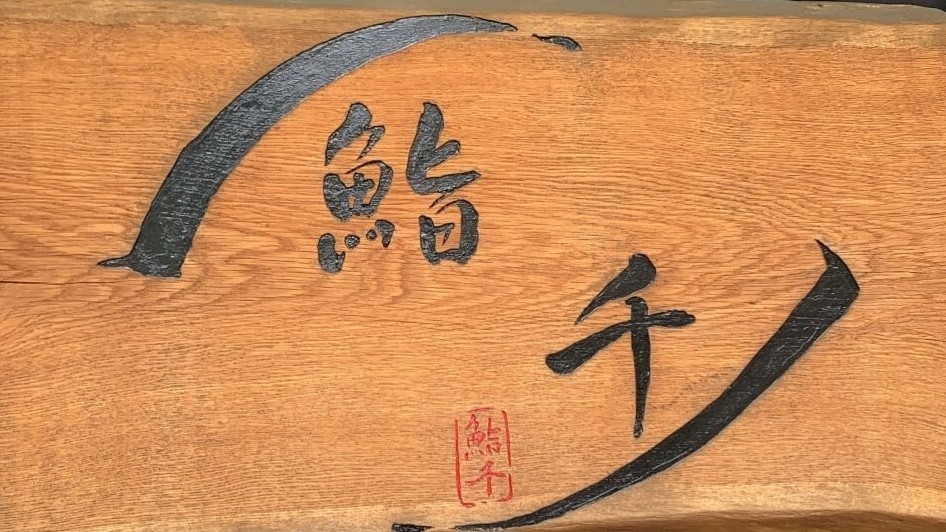 鮨
千
鮨
千